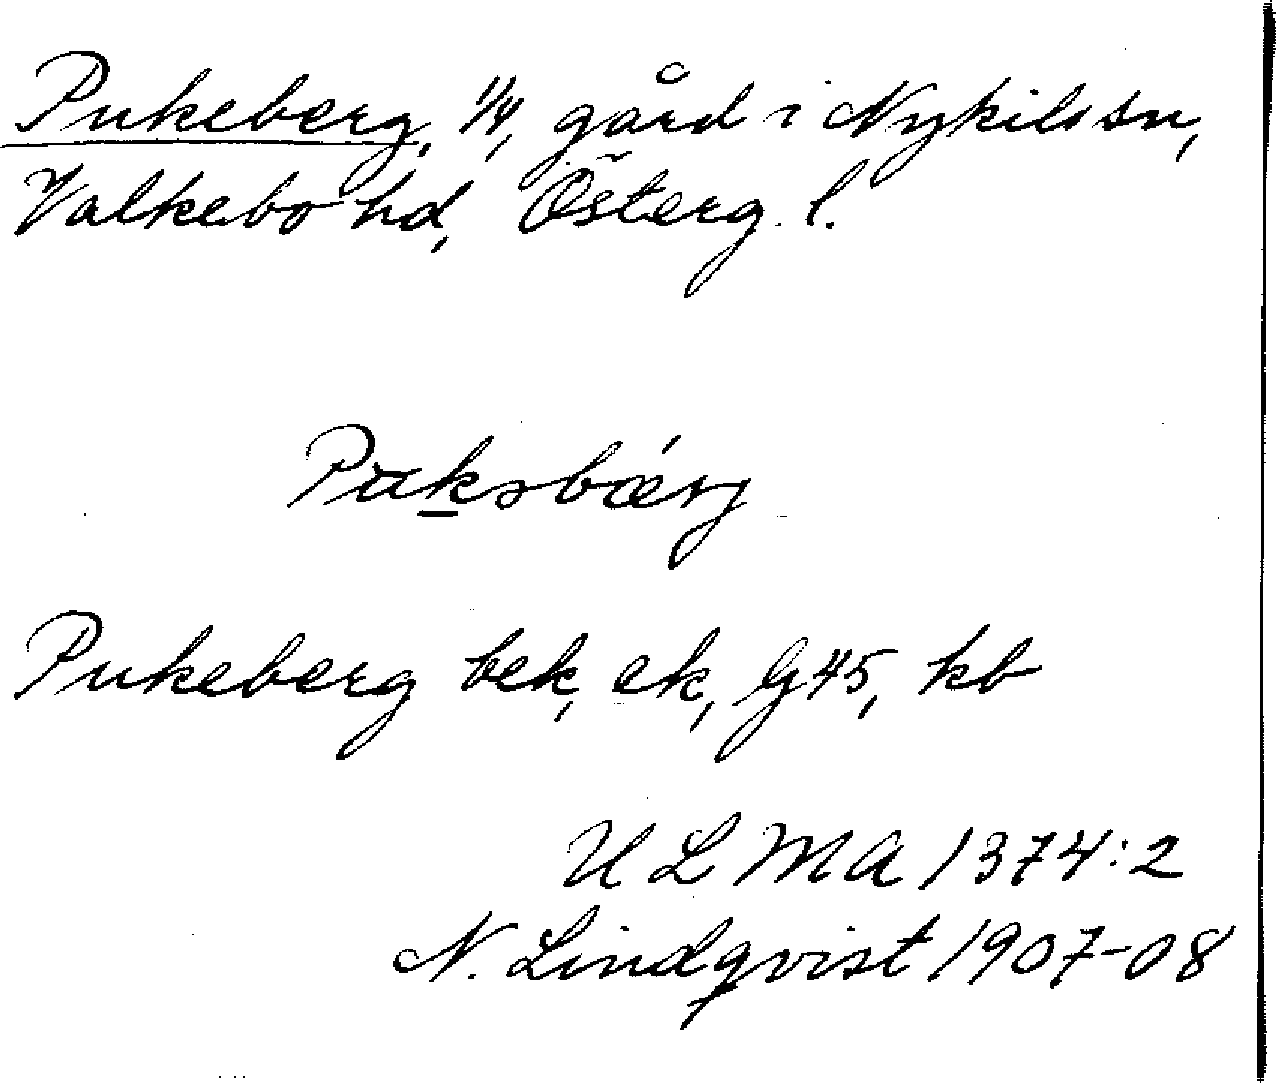 Pukeberg, 1/4, gård i Nykils sn,
Valkebo hd, Österg. l.
Pukəbærj
Pukeberg bek, ek, G45, kb
ULMA 1374:2
N. Lindqvist 1907-08